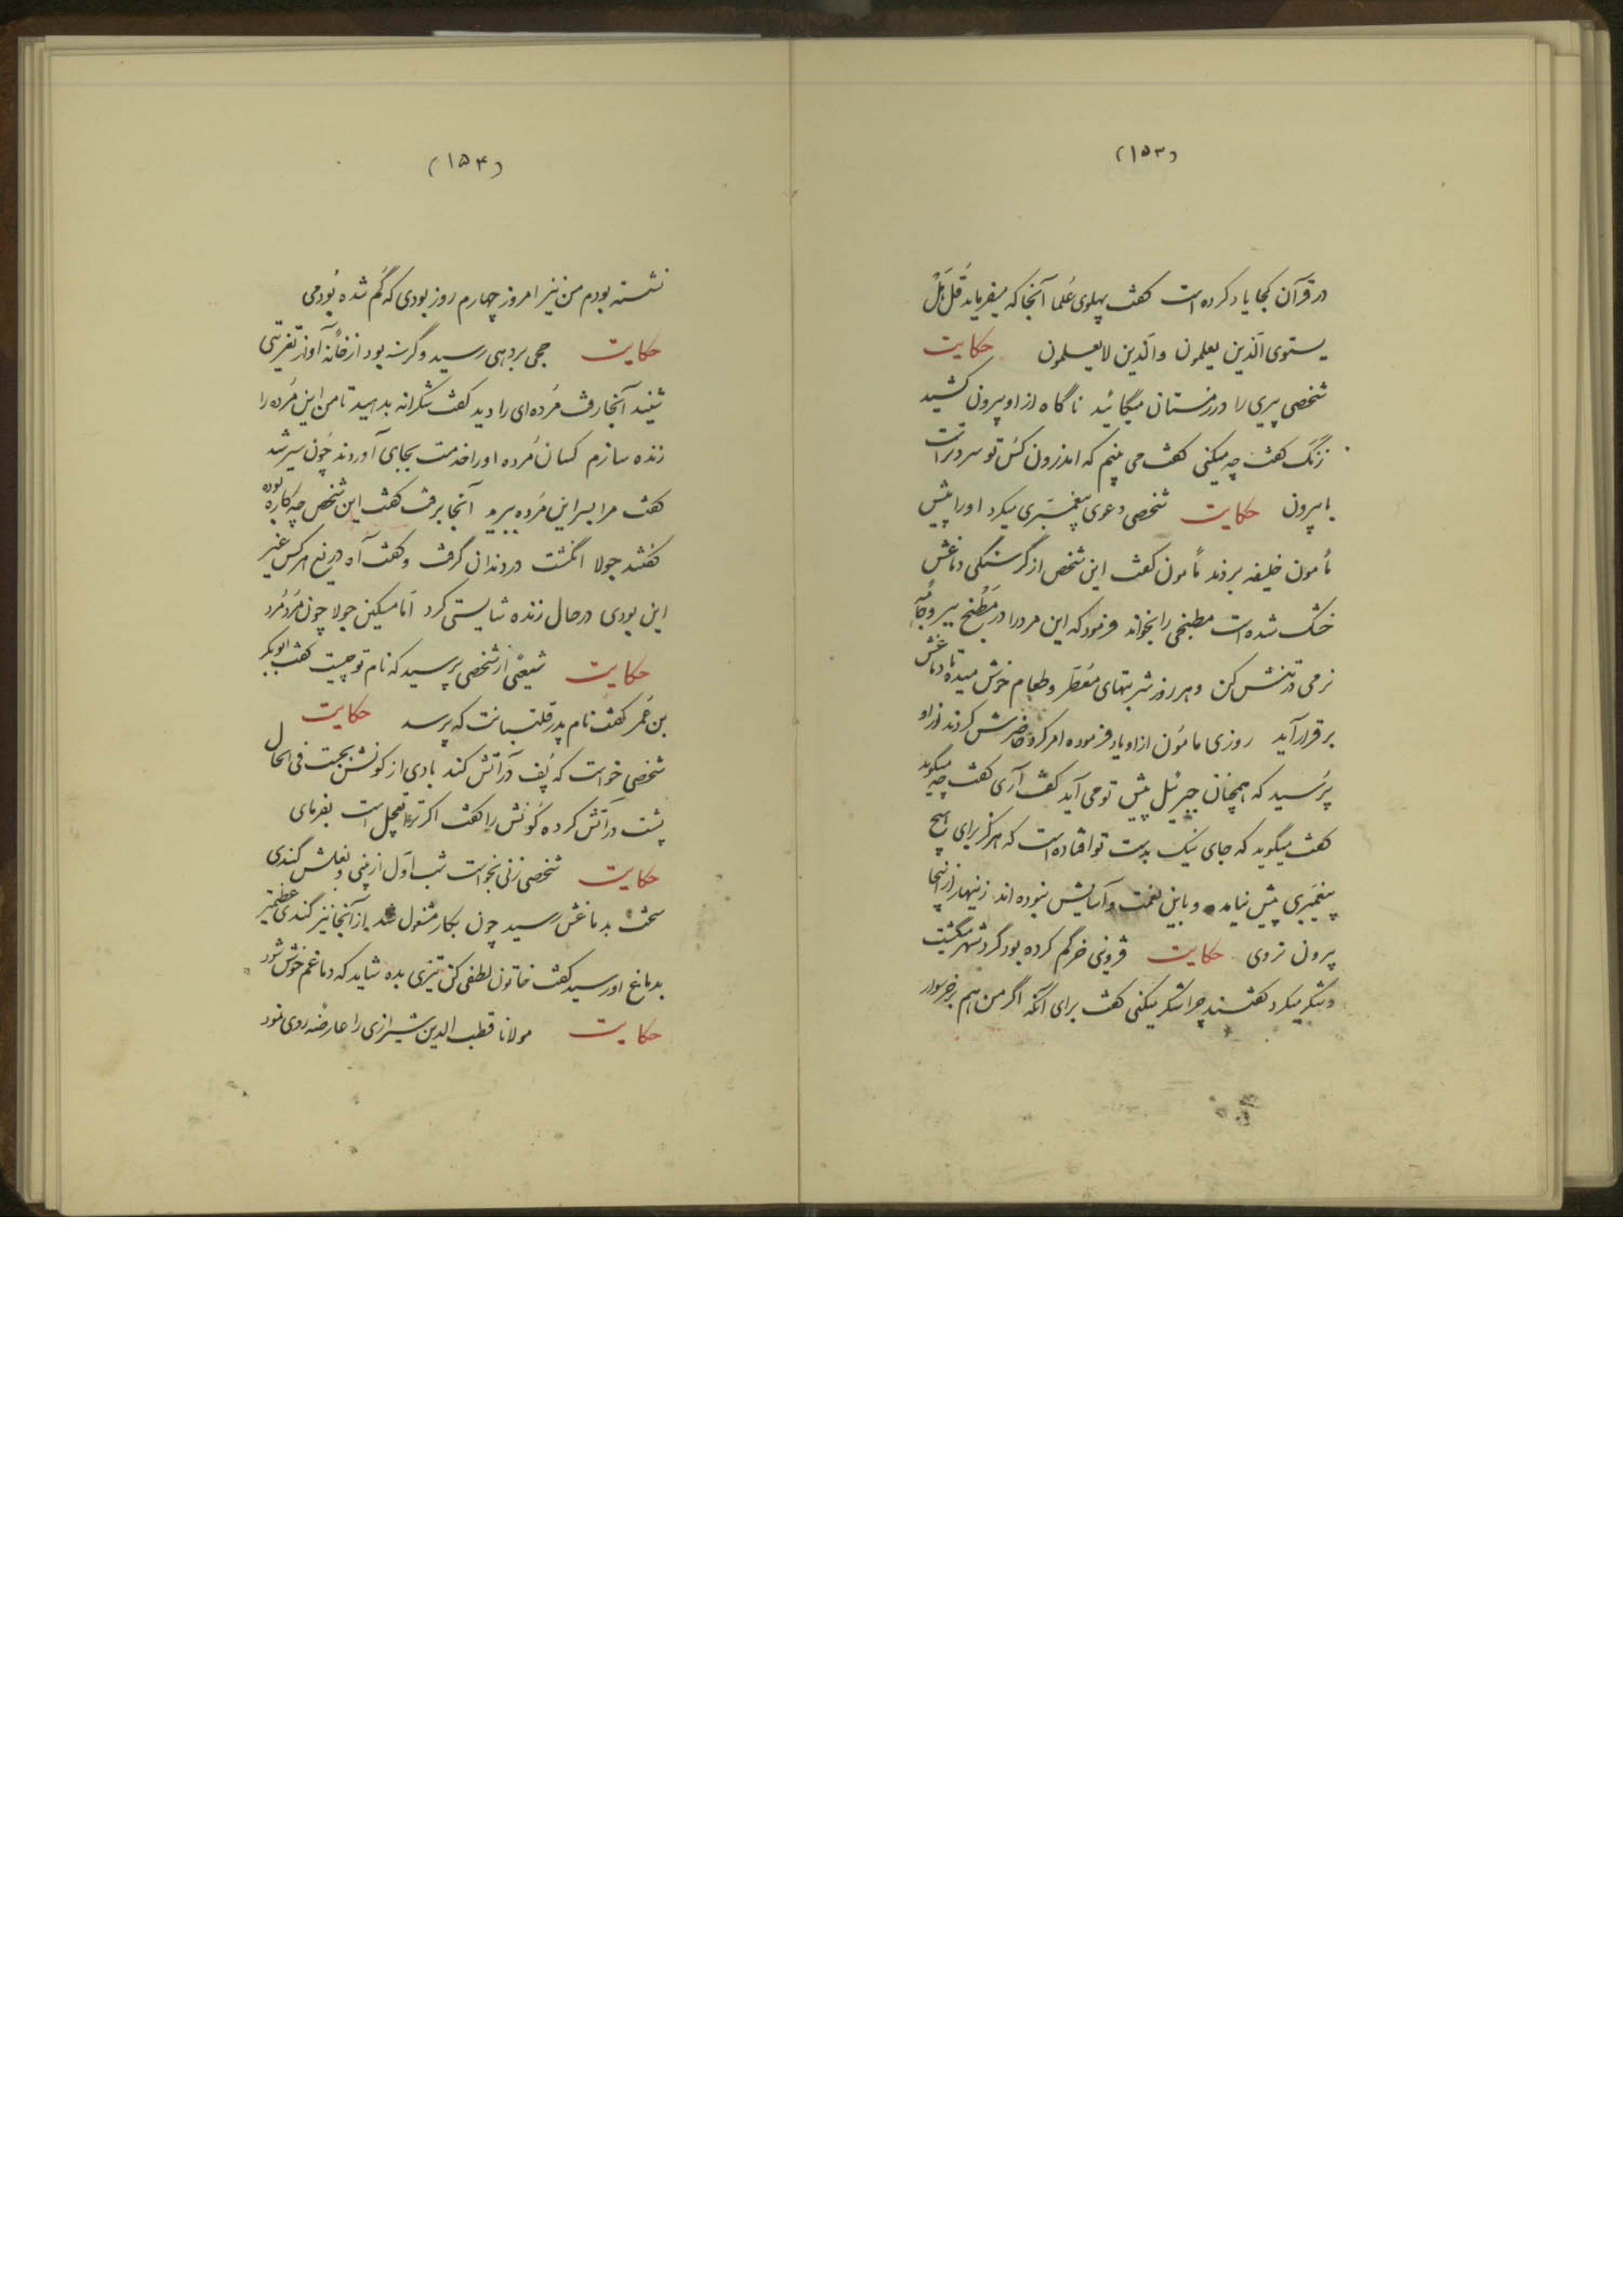 (۱۵۳)
در قرآن کجا یاد کرده است گفت پهلوی عُلما آنجا که میفرماید قُل هَلْ
یستوی الّذین یعلمون والّذین لایعلمون حکایت
شخصی پیری را در زمستان میگائید ناگاه از او بیرون کشید
زنک گفت چه میکنی گفت می بینم که اندرون کُس تو سردتر است
یا بیرون حکایت شخصی دعوی پیغمبَری میکرد او را پیش
مأمون خلیفه بردند مأمون گفت این شخص از گرسنگی دماغش
خشک شده است مطبخی را بخواند فرمود که این مرد را در مَطْبخ ببر و جامُه
نرمی در تنش کن و هر روز شربتهای مُعَطّر و طعام خوش میده تا دماغش
برقرار آید روزی مامُون از او یاد فرموده امر کرد حاضرش کردند از او
پُرسید که همچنان جبرئیل پیش تو می آید گفت آری گفت چه میگوید
گفت میگوید که جای نیک بدست تو افتاده است که هرگز برای هیچ
پیغمبَری پیش نیامد و باین نعمت و آسایش نبوده اند زینهار از اینجا
بیرون نروی حکایت قزوینی خر گم کرده بود گرد شهر میگشت
و شکر میکرد گفتند چرا شکر میکنی گفت برای آنکه اگر من هم بر خر سوار
(۱۵۴)
نشسته بودم من نیز امروز چهارم روز بودی که گُم شده بُودمی
حکایت جحی بردهی رسید و گرسنه بود از خانه آواز تعزیتی
شنید آنجا رفت مُرده‌ای را دید گفت شکرانه بدهید تا من این مُرده را
زنده سازم کسان مُرده او را خدمت بجای آوردند چُون سیر شد
گفت مرا بسر این مُرده ببرید آنجا برفت گفت این شخص چه کاره بوده
گفتند جولا انگشت در دندان گرفت و گفت آه دریغ هر کس غیر
این بودی در حال زنده شایستی کرد امّا مسکین جولا چون مُرد مُرد
حکایت شیعئی از شخصی پرسید که نام تو چیست گفت ابوبکر
بن عُمر گفت نام پدر قلتبانت که پرسد حکایت
شخصی خواست که پُف در آتش کند بادی از کونش بجست فی الحال
پشت در آتش کرده کُونش را گفت اگر ترا تعجیل است بفرمای
حکایت شخصی زنی بخواست شب اوّل از بینی و بغلش گندی
سخت بدماغش رسید چون بکار مشغول شد از آنجا نیز گندی عظیمتر
بدماغ او رسید گفت خاتون لطفی کن تیزی بده شاید که دماغم خوش شود
حکایت مولانا قطب الدین شیرازی را عارضه روی نمود